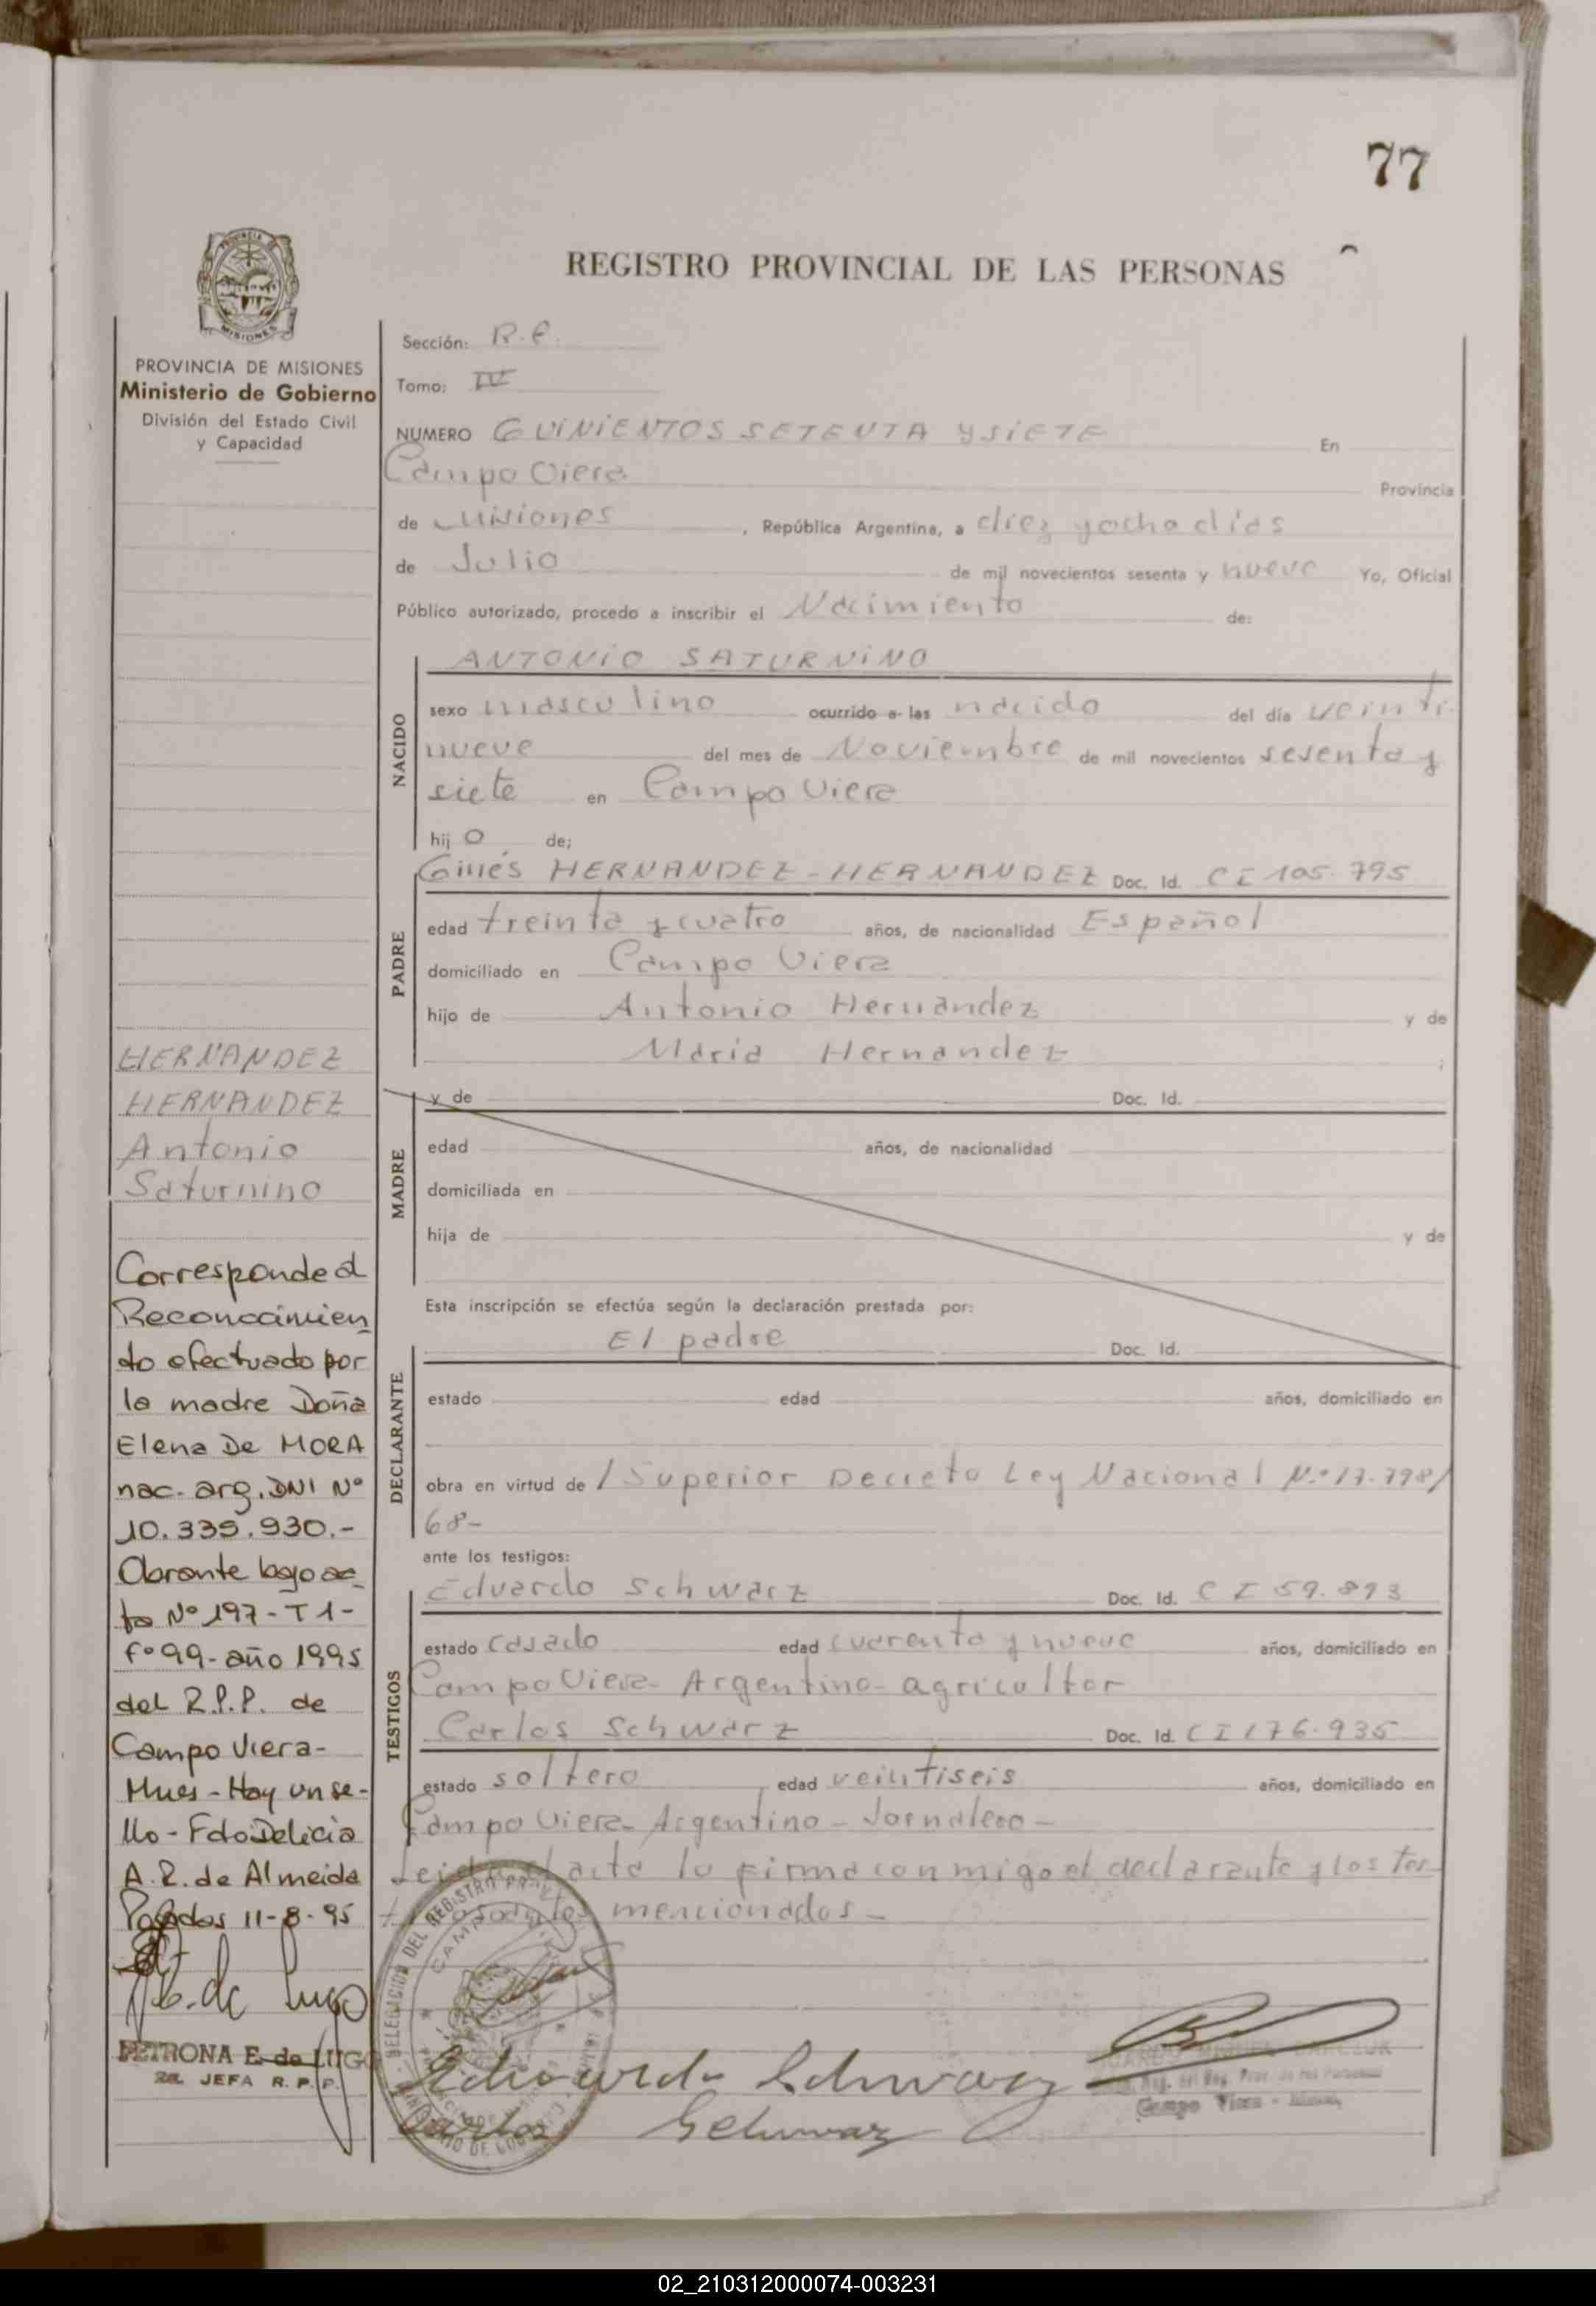 77
REGISTRO PROVINCIAL DE LAS PERSONAS
PROVINCIA DE
MISIONES
PROVINCIA DE MISIONES
Ministerio de Gobierno
División del Estado Civil
y Capacidad
Sección: R.E.
Tomo: IV
NUMERO QUINIENTOS SETENTA Y SIETE En
Campo Viera Provincia
de Misiones , República Argentina, a diez y ocho días
de Julio de mil novecientos sesenta y nueve Yo, Oficial
Público autorizado, procedo a inscribir el Nacimiento de:
NACIDO
ANTONIO SATURNINO
sexo masculino ocurrido a las nacido del día veinti
nueve del mes de Noviembre de mil novecientos sesenta y
siete en Campo Viera
hij o de;
PADRE
Ginés HERNANDEZ-HERNANDEZ Doc. Id. CI 105.795
edad treinta y cuatro años, de nacionalidad Español
domiciliado en Campo Viera
hijo de Antonio Hernández y de
María Hernandez ;
MADRE
y de Doc. Id.
edad años, de nacionalidad
domiciliada en
hija de y de
Esta inscripción se efectúa según la declaración prestada por:
DECLARANTE
El padre Doc. Id.
estado edad años, domiciliado en
obra en virtud de / Superior Decreto Ley Nacional N.º 17.798/
68-
ante los testigos:
TESTIGOS
Eduardo Schwarz Doc. Id. CI 59.893
estado casado edad cuarenta y nueve años, domiciliado en
Campo Viera- Argentino- agricultor
Carlos Schwarz Doc. Id. CI 176.935
estado soltero edad veintiseis años, domiciliado en
Campo Viera- Argentino - Jornalero -
Leida el acta la firma conmigo el declarante y los tes
mencionados-
HERNANDEZ
HERNANDEZ
Antonio
Saturnino
Corresponde al
Reconocimien
to efectuado por
la madre Doña
Elena De MORA
nac. arg. DNI Nº
10.339.930.-
Obrante bajo ac
ta Nº 197-T 1-
fº 99- año 1995
del R.P.P. de
Campo Viera-
Mnes - Hay un se-
llo - Fdo Delicia
A. R. de Almeida
Posadas 11-8-95
PETRONA E. de LUGO
JEFA R. P. P.
DELEGACION DEL REGISTRO
Eduardo Schwarz
Carlos Schwarz
Campo Viera -
02_210312000074-003231